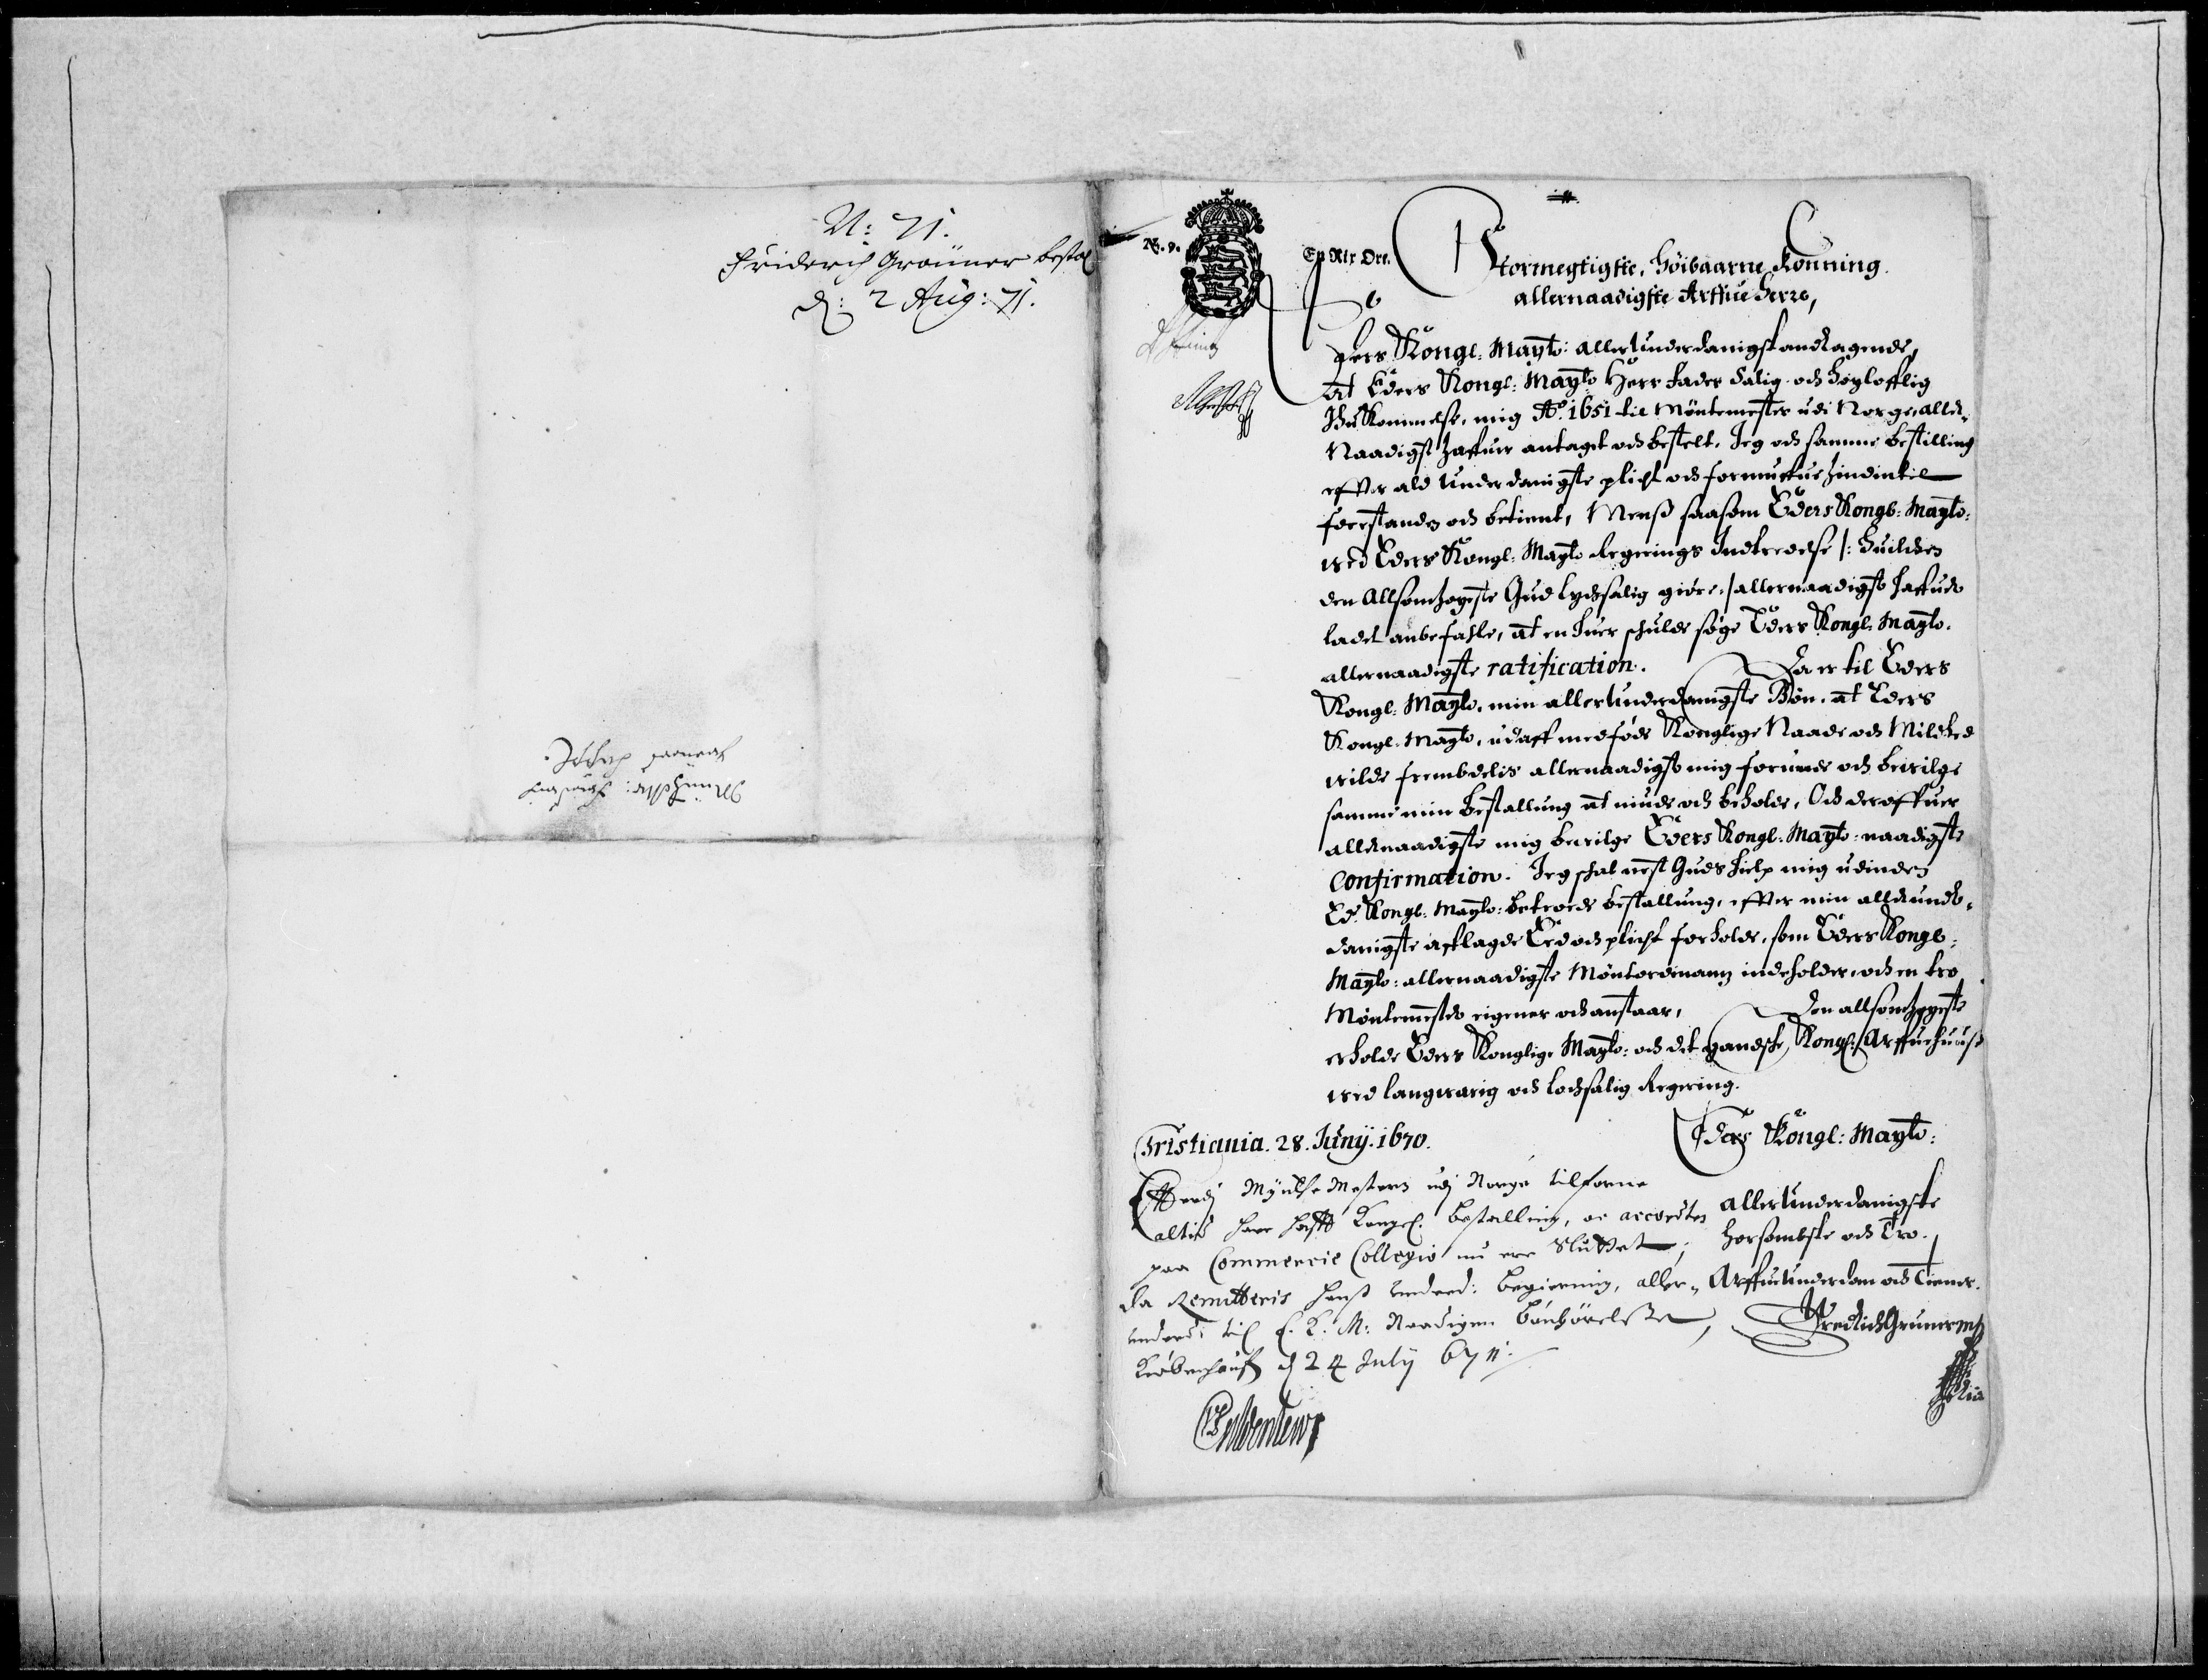 N: 71.
Friderich Grouner bestal
d: 2 Aug: 71.
No. 9.
En Rix Ort.
Stormegtigste, Höibaarne Konning
allernaadigste Arffue Herre,
Eders Kongl: Maytt: allerunderdanigst andragende,
at Eders Kongl: Maytt Herr Fader Salig och höylofflig
Ihukommelse, mig Ao. 1651 til Möntemester udi Norge, aller-
Naadigst haffuer antaget och bestelt, Jeg och samme bestilling
efter ald underdanigste plicht och formuffue hindintil
forestanden och betient, Menß saasom Eders Kongl: Maytt:
wed Eders Kongl: Maytt Regerings Indtredelse /: huilcken
den Allsomhøyeste Gud lycksalig giöre :/ allernaadigst haffuer
ladet anbefahle, at en huer schulde søge Eders Kongl: Maytt.
allernaadigste ratification. Da er til Eders
Kongl: Maytt. min allerunderdanigste Bøn, at Eders
Kongl: Maytt, udaff medföde Konglige Naade och Mildhed
wilde frembdelis allernaadigst mig forunde och bewilge
samme min Bestallung at niude och beholde, Och deroffuer
allernaadigste mig bewilge Eders Kongl: Maytt: naadigste
Confirmation. Jeg schal nest Guds hielp mig udinden
Ed: Kongl: Maytt: betroede bestallung, efter min allerunder-
danigste afflagde Eed och plicht forholde, som Eders Kongl:
Maytt: allernaadigste Möntordinantz indeholder, och en tro
Möntemester eigener och anstaar, Den allsomhøyeste
erholde Eders Konglige Maytt: och det gandske Kongl: Arffuehuuß
wed langwarig och locksalig Regering.
Cristiania. 28. Junij. 1670.
Eders Kongl: Maytt:
Allerunderdanigste
horsombste och Tro
Arffueunderdan och Tiener
Fredrich Gruner
Efterdj Myndte Mestern udj Norge tilforne
altid haer hafft Kongl: bestalling, oc accorden
paa Commercie Collegio nu ere Sluttet;
da Remitteris hanß underd: begiering, aller-
underd: til E. K. M: Naadigen bönhörelse,
Kiøbenhaufn d 24 Julij 671.